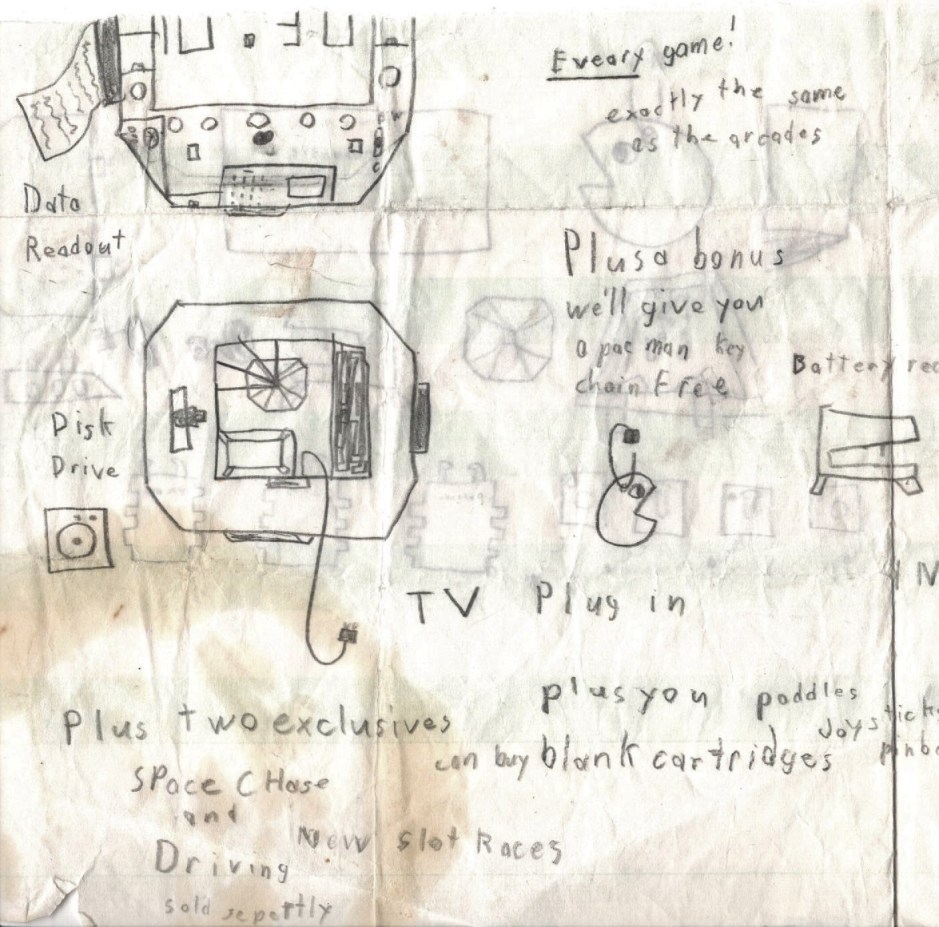 Eveary game!
exactly the same
as the arcades
Data
Readout
Plus a bonus
we'll give you
a pac man key
chain Free
Battery rec
Disk
Drive
TV Plug in
Plus two exclusives
Space CHase
and
Driving
New slot Races
sold sepertly
plus you
can buy blank cartridges
paddles
Joysticks
pinba